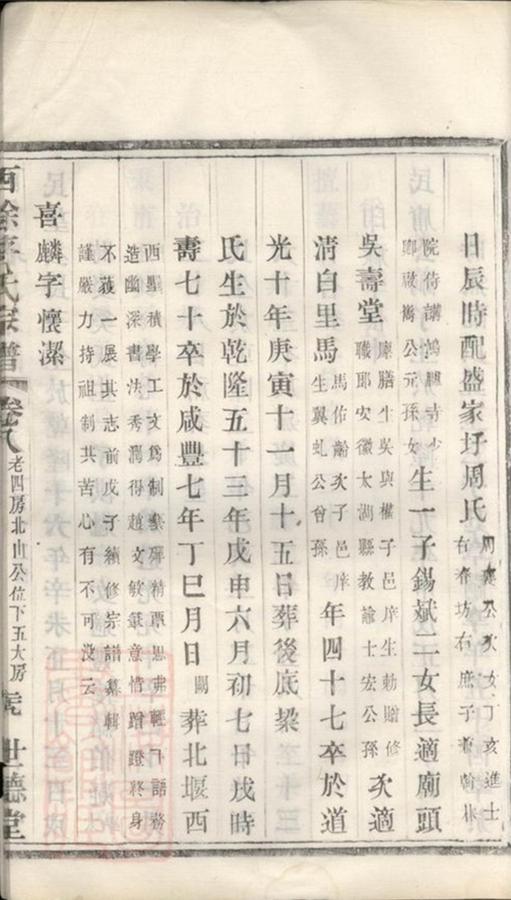 日辰時配盛家圩周氏 公次女丁亥進士右春坊右庶子
院侍講鴻臚寺少卿 公元孫女 生一子錫斌二女長適廟頭
吳壽堂 廩膳生吳與權子邑庠生勅贈修職郎安徽太湖縣教諭士宏公孫 次適
清白里馬 馬佑齡次子邑庠生翼虬公曾孫 年四十七卒於道
光十年庚寅十一月十五日葬後底梁
氏生於乾隆五十三年戊申六月初七日戌時
壽七十卒於咸豐七年丁巳月日 闕 葬北堰西
西墅積學工文為制藝研精覃思弗輕下語務
造幽深書法秀潤得趙文敏筆意惜蹭蹬終身
不獲一展其志前戊子續修宗譜纂輯
謹嚴力持祖制其苦心有不可沒云
喜麟字懷潔
西徐氏宗譜 卷八 老四房北山公位下五大房 世德堂